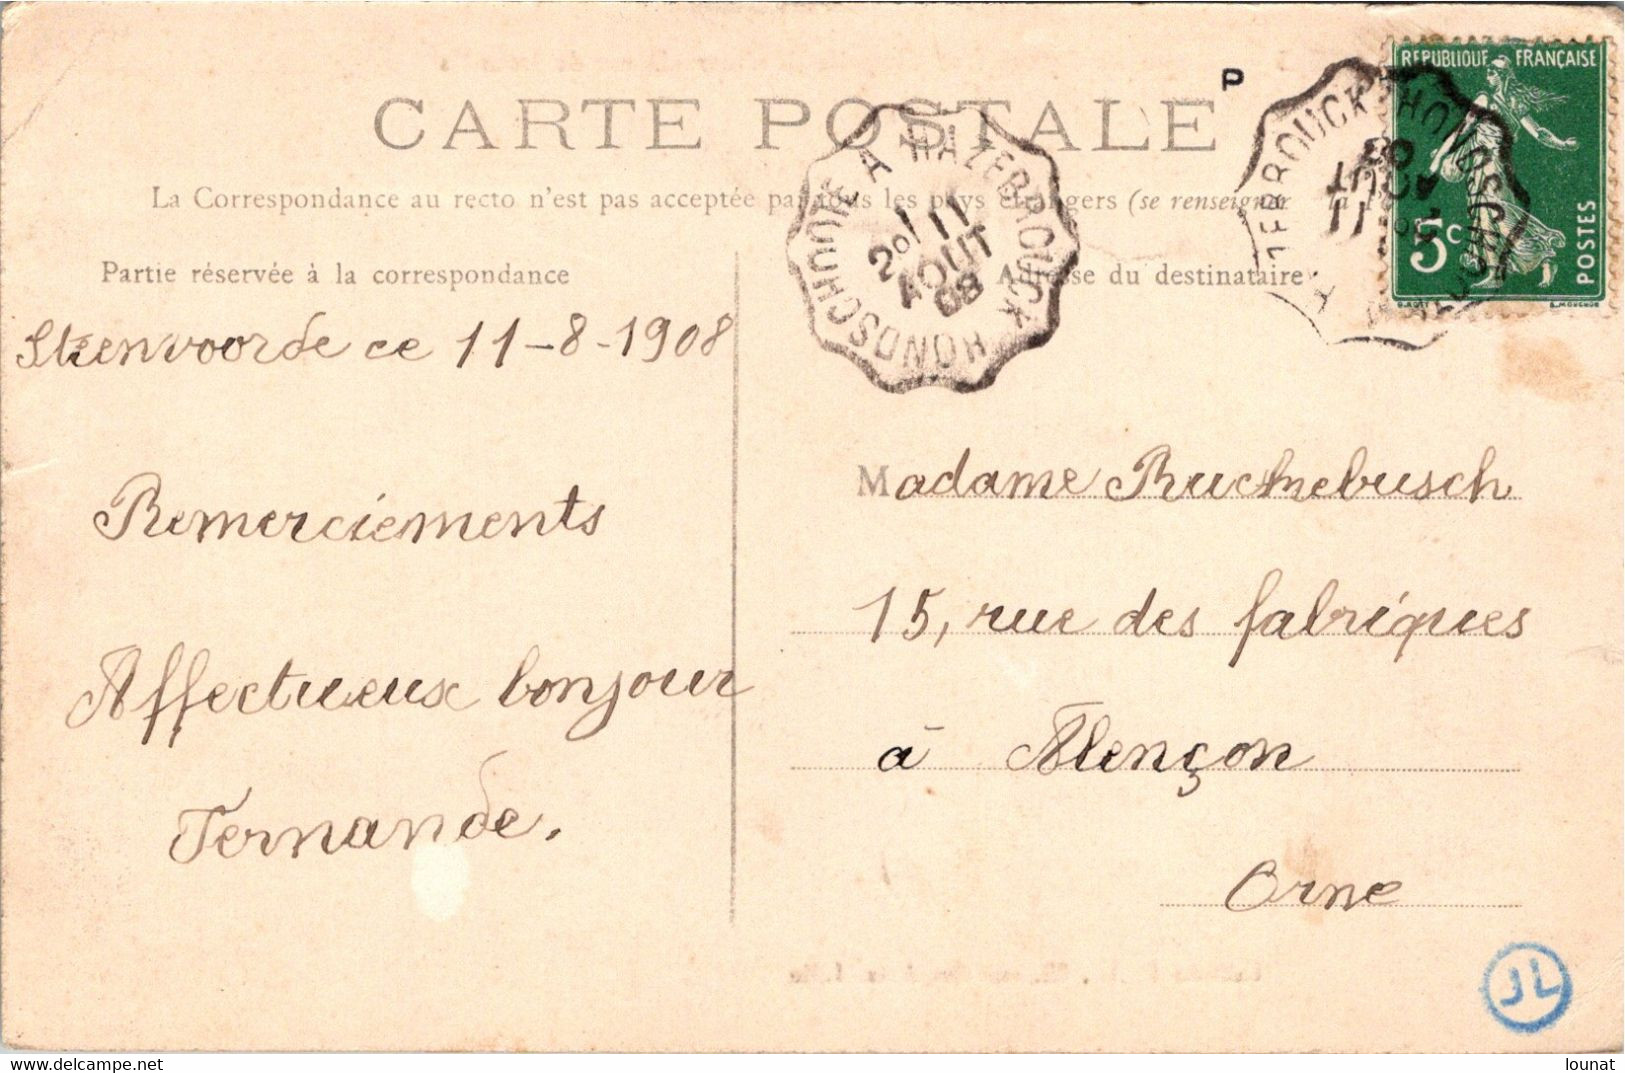 REPUBLIQUE FRANÇAISE
P
CARTE POSTALE
La Correspondance au recto n'est pas acceptée par tous les pays étrangers (se renseigner
5c
POSTES
HONDSCHOOTE A HAZEBROUCK
11
AOUT
08
Partie réservée à la correspondance
Adresse du destinataire
Steenvoorde ce 11-8-1908
Remerciements
Affectueux bonjour
Fernande.
Madame Ruckebusch
15, rue des fabriques
à Alençon
Orne
JL
lounat